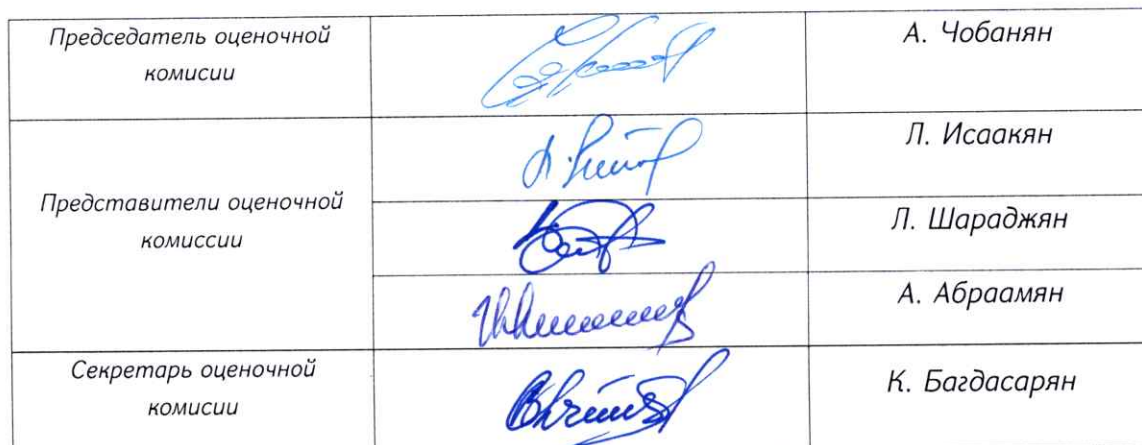 Председатель оценочной
комисии
А. Чобанян
Л. Исаакян
Представители оценочной
комиссии
Л. Шараджян
А. Абраамян
Секретарь оценочной
комисии
К. Багдасарян